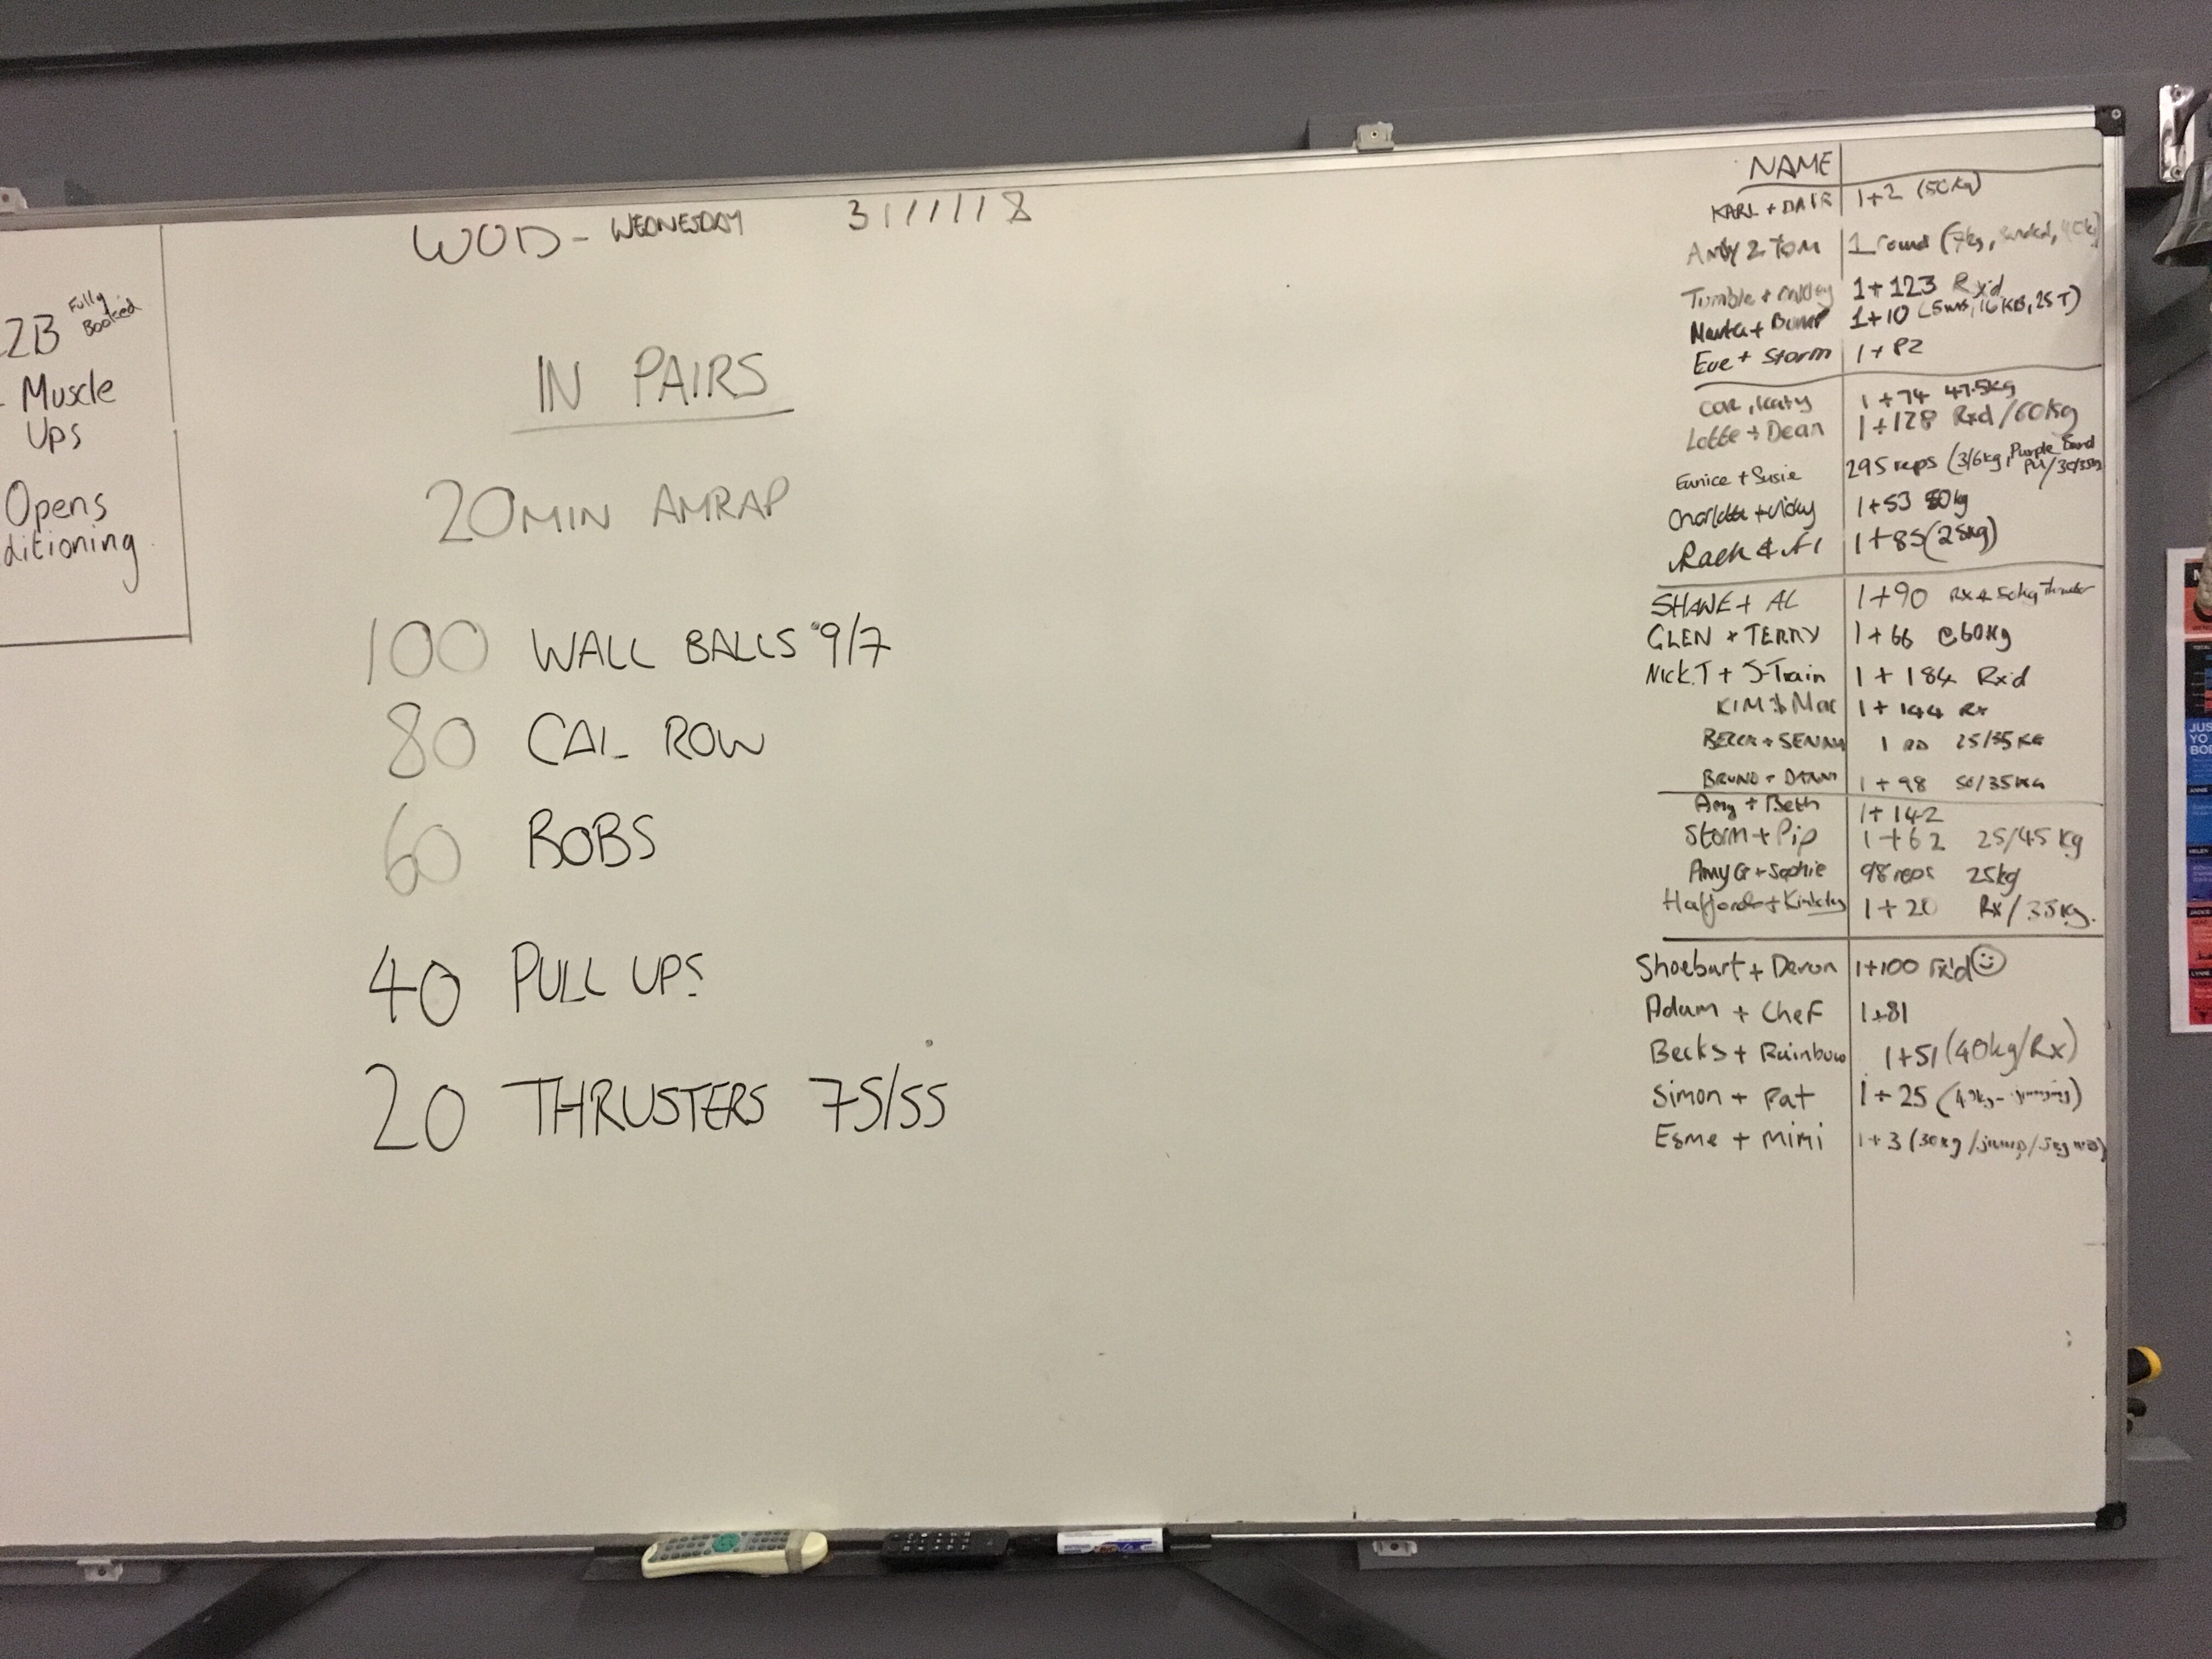 2B Fully
Booked
- Muscle
Ups
Opens
ditioning
WOD - WEDNESDAY 31/1/18
IN PAIRS
20MIN AMRAP
100 WALL BALLS 9/7
80 CAL ROW
60 BOBS
40 PULL UPS
20 THRUSTERS 75/55
NAME
KARL + 1+2 (50Kg)
Andy & Tom 1 round (7kg,
Tumble + 1+123 Rx'd
1+10 (5WB, 16KB, 25T)
Eve + Storm 1+82
Katy 1+74 47.5kg
Lotte + Dean 1+128 Rxd/60kg
Eunice + Susie 295 reps (3/6kg, Purple Band
PU/
Charlotte + Vicky 1+53 50kg
Rach & Al 1+85 (25kg)
SHANE + AL 1+90 Rx & 50kg Thruster
GLEN + TERRY 1+66 @60Kg
Nick.T + J-Train 1+184 Rx'd
KIM & Mac 1+144 Rx
1 RD 25/35 KG
BRUNO + 1+98 50/35KG
Amy + Beth 1+142
Storm + Pip 1+62 25/45 kg
Amy G + Sophie 98 reps 25kg
1+20 Rx/35kg.
Shoebart + Devon 1+100 rx'd ☺
Adam + Chef 1+81
Becks + Rainbow 1+51 (40kg/Rx)
Simon + Pat 1+25 (40kg - jumping)
Esme + Mimi 1+3 (30kg/jump/5kg WB)
JUS
YO
BOD
ANNIE
HELEN
JACKIE
LYNNE